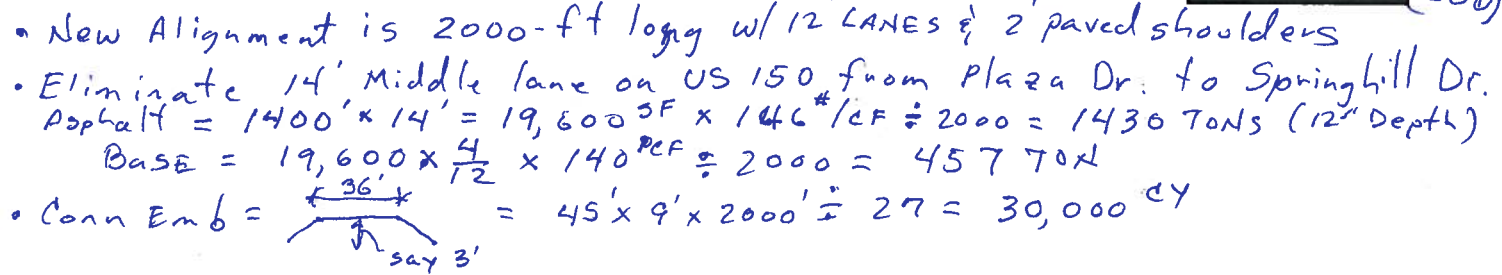 • New Alignment is 2000-ft long w/ 12 LANES & 2' paved shoulders
• Eliminate 14' Middle lane on US 150 from Plaza Dr. to Springhill Dr.
Asphalt = 1400' x 14' = 19,600 SF x 146 #/CF ÷ 2000 = 1430 TONS (12" Depth)
BASE = 19,600 x 4/12 x 140 PCF ÷ 2000 = 457 TON
36'
• Conn Emb = = 45' x 9' x 2000' ÷ 27 = 30,000 CY
say 3'